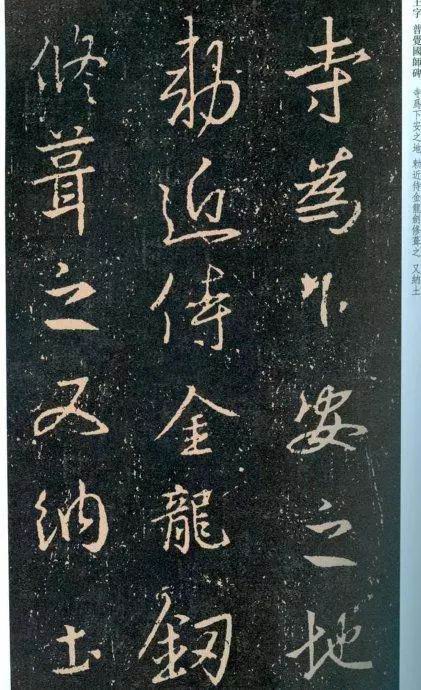 王字 普覺國師碑 寺爲下安之地 勅近侍金龍劍修葺之 又納土
寺為下安之地
勅近侍金龍釼
修葺之又納土